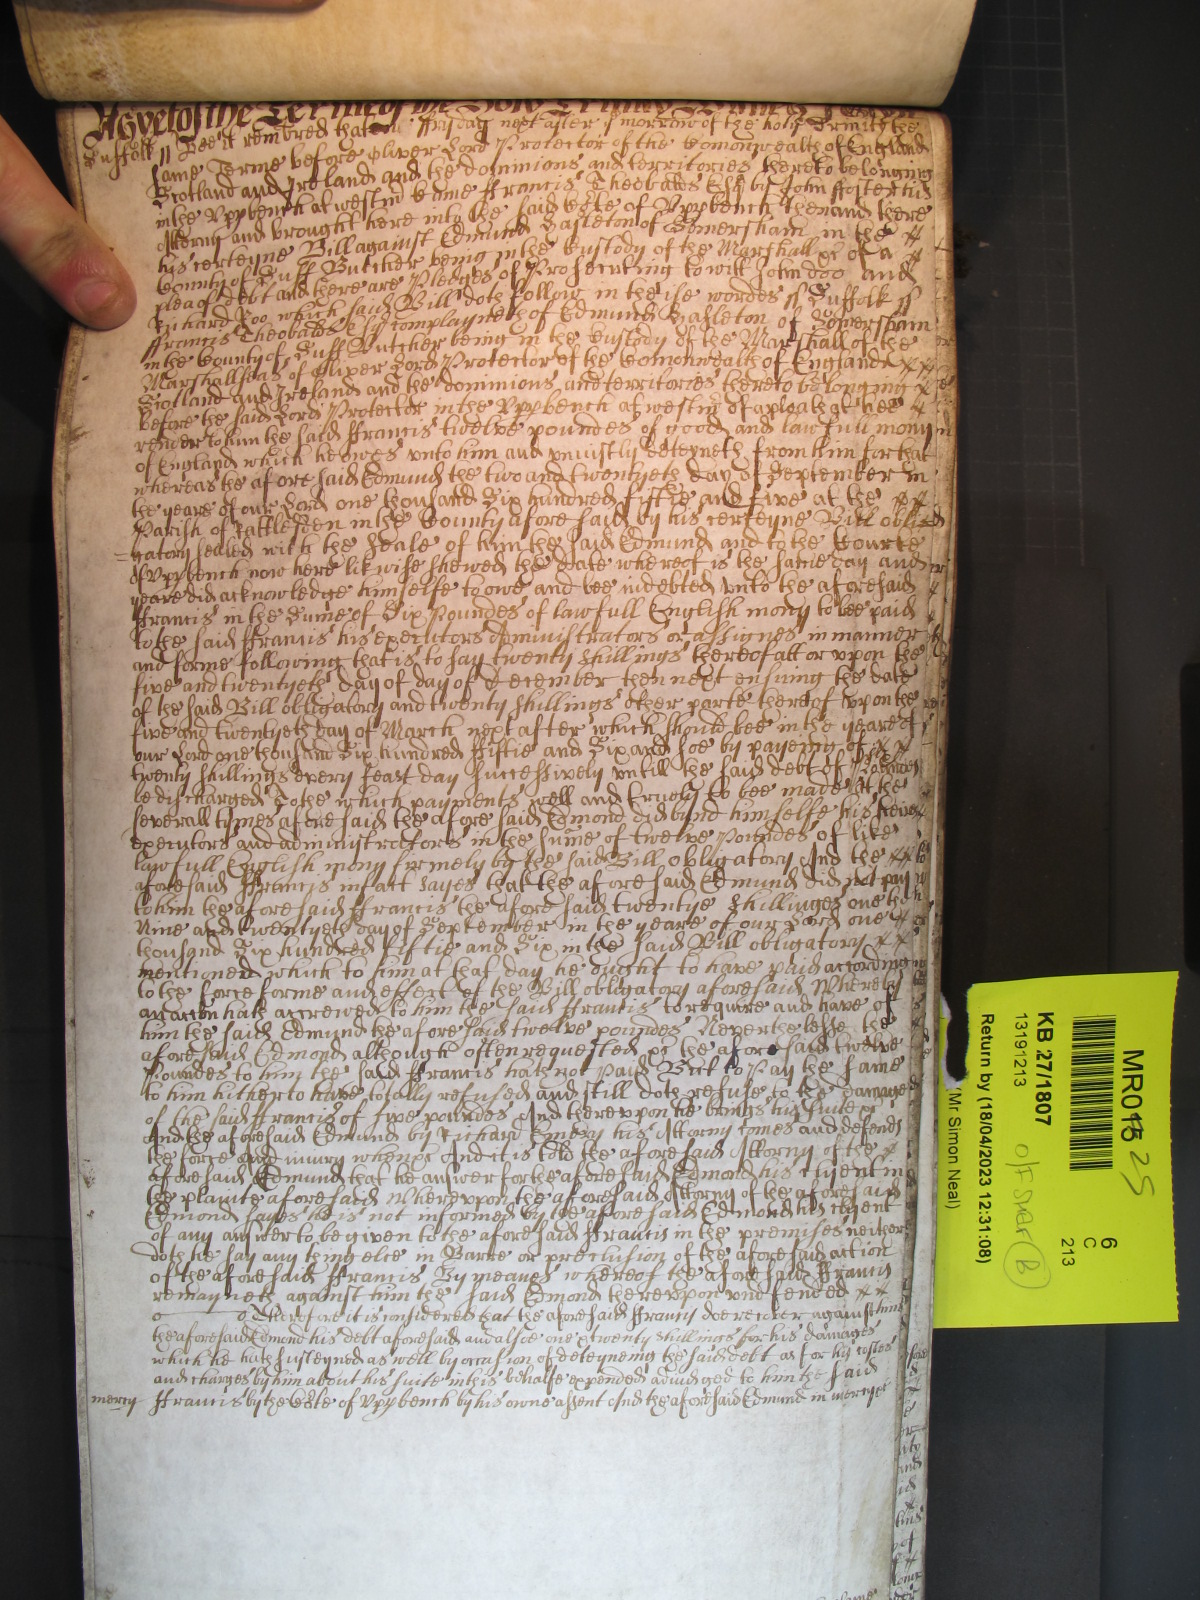 As yet of the Terme of the Holy Trinity
Suffolk ss Bee it remembred that Friday next after ye morrow of the holy Trinity the
same Terme before Oliver Lord Protector of the Comonwealth of England
Scotland and Ireland and the dominions and territories thereto belonging
in the Vppbench at westm came Ffrancis Theobalds Esq by John ffoster his
Attorny and brought here into the said Court of Vppbench then and there
his certeyne Bill against Edmund Hasleton of Somersham in the
County of Suff Butcher being in the Custody of the Marshall &c of a
plea of debt and there are Pledges of Prosecuting to witt John doo and
Richard Roo which said Bill doth follow in these wordes ss Suffolk ss
Ffrancis Theobalds Esq complayneth of Edmund Hasleton of Somersham
in the County of Suff Butcher being in the Custody of the Marshall of the
Marshallseas of Oliver Lord Protector of the Comonwealth of England
Scotland and Ireland and the dominions and territories thereto belonging
before the said Lord Protector in the Vppbench at westm of a plea that hee
render to him the said Ffrancis twelve poundes of good and lawfull mony
of England which he owes unto him and uniustly deteyneth from him for that
whereas the aforesaid Edmund the two and twentyeth day of September in
the yeare of our Lord one thousand Six hundred fiftie and five at the
Parish of Rattlesden in the County aforesaid by his certeyne Bill obli
=gatory sealed with the Seale of him the said Edmund and to the Courte
of Vppbench now here likewise shewed the date whereof is the same day and
yeare did acknowledge himselfe to owe and bee indebted unto the aforesaid
Ffrancis in the Sume of Six Poundes of lawfull English mony to bee paid
to the said Ffrancis his executors Administrators or assignes in manner
and forme following that is to say twenty shillings thereof att or vpon the
five and twentyeth day of day of December then next ensuing the date
of the said Bill obligatory and twenty shillings other parte thereof vpon the
five and twentyeth day of March next after which should bee in the yeare of
our Lord one thousand Six hundred fiftie and Six and soe by payeing of
twenty shillings every feast day successively untill the said debt of Six Poundes
be discharged To the which payments well and truely to bee made att the
severall tymes aforesaid the aforesaid Edmond did bynd himselfe his heires
executors and administrators in the sume of twelve Poundes of like
lawfull English mony firmely by the said Bill obligatory And the
aforesaid Ffrancis in fact sayes that the aforesaid Edmund did not pay
to him the aforesaid Ffrancis the aforesaid twentye shillinges one the
Nine and twentyeth day of September in the yeare of our Lord one
thousand Six hundred fiftie and Six in the said Bill obligatory
mentioned which to him at that day he ought to have paid according
to the force forme and effect of the Bill obligatory aforesaid Whereby
an accon hath accrewed to him the said Ffrancis to require and have of
him the said Edmund the aforesaid twelve poundes Neverthelesse the
aforesaid Edmond although often requested &c the aforesaid twelve
Poundes to him the said Ffrancis hath not Paid But to Pay the same
to him hitherto have totally refused and still doth refuse to the damage
of the said Ffrancis of five poundes And therevpon he brings his suite &c
And the aforesaid Edmund by Richard Embry his Attorny comes and defends
the force and iniury when &c And it is told the aforesaid Attorny of the
aforesaid Edmund that he answer for the aforesaid Edmond his clyent in
the plainte aforesaid Wherevpon the aforesaid Attorny of the aforesaid
Edmond sayes he is not informed by the aforesaid Edmond his clyent
of any answer to be given to the aforesaid Ffrancis in the premises neither
doth he say any thing else in Barre or preclusion of the aforesaid action
of the aforesaid Ffrancis By meanes whereof the aforesaid Ffrancis
remayneth against him the said Edmond therevpon undefenced
Therefore it is considered that the aforesaid Ffrancis doe recover against him
the aforesaid Edmond his debt aforesaid and alsoe one & twenty shillings for his damages
which he hath susteyned as well by occasion of deteyneing the said debt as for his costes
and charges by him about his suite in this behalfe expended adiudged to him the said
mercy Ffrancis by the Court of Vppbench by his owne assent And the aforesaid Edmund in mercy &c
MR01 25
6
C
213
KB 27/1807
13191213
Return by (18/04/2023 12:31:08)
(Mr Simon Neal)
B